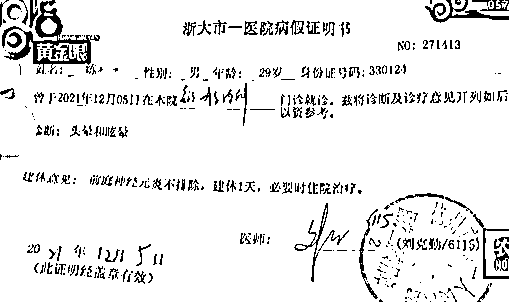 黄金眼
浙大市一医院病假证明书
NO: 271413
姓名: 陈** 性别: 男 年龄: 29岁 身份证号码: 330124
曾于2021年12月05日在本院 门诊就诊。兹将诊断及诊疗意见开列如后
以资参考。
诊断: 头晕和眩晕
建休意见: 前庭神经元炎不排除。建休1天,必要时住院治疗。
医师: (刘克勤/6115)
2021年12月5日
(此证明经盖章有效)